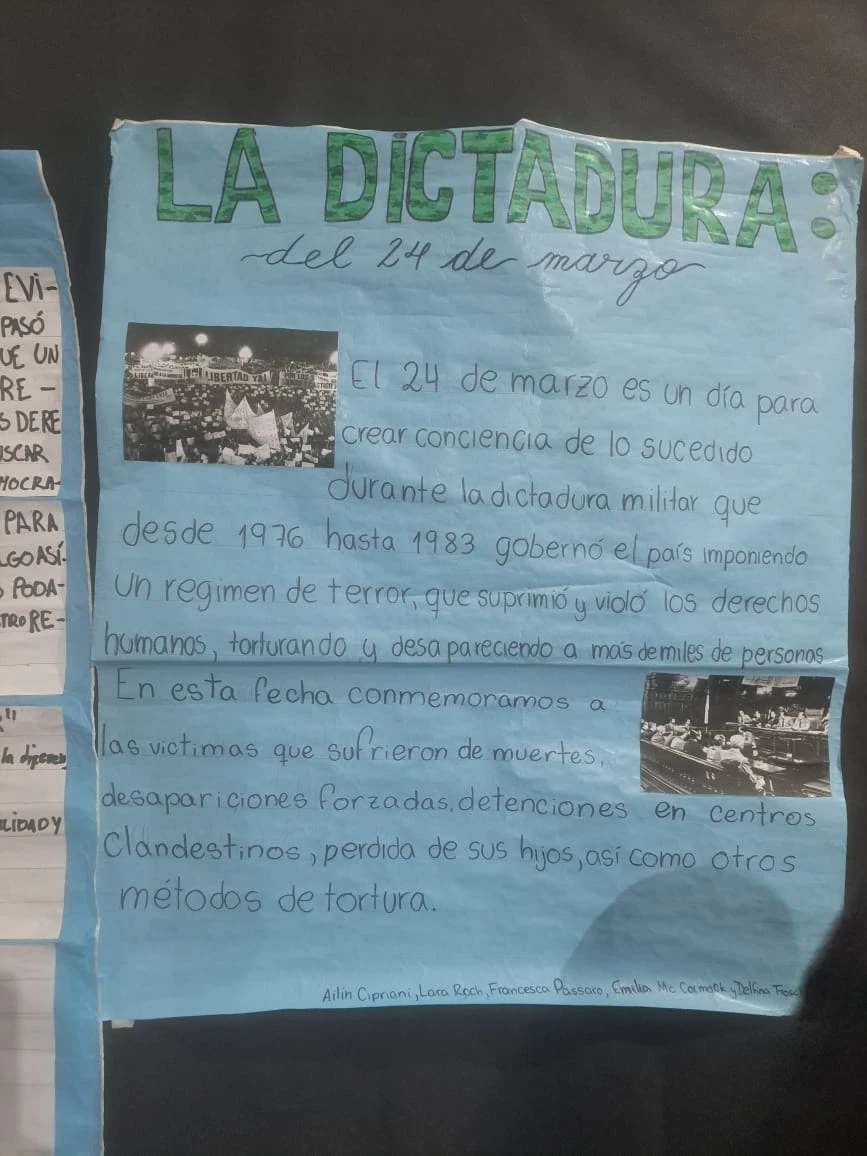 LA DICTADURA:
del 24 de marzo
LIBERTAD YA!
El 24 de marzo es un día para
crear conciencia de lo sucedido
durante la dictadura militar que
desde 1976 hasta 1983 gobernó el país imponiendo
un regimen de terror, que suprimió y violó los derechos
humanos, torturando y desapareciendo a más de miles de personas
En esta fecha conmemoramos a
las victimas que sufrieron de muertes,
desapariciones forzadas, detenciones en centros
Clandestinos, perdida de sus hijos, así como otros
métodos de tortura.
Ailín Cipriani, Lara Roch, Francesca Passaro, Emilia Mc Cormack y Delfina
EVI-
PASÓ
UE UN
RE-
S DERE
USCAR
MOCRA-
PARA
LGO ASÍ.
PODA-
TRO RE-
la
LIDAD Y